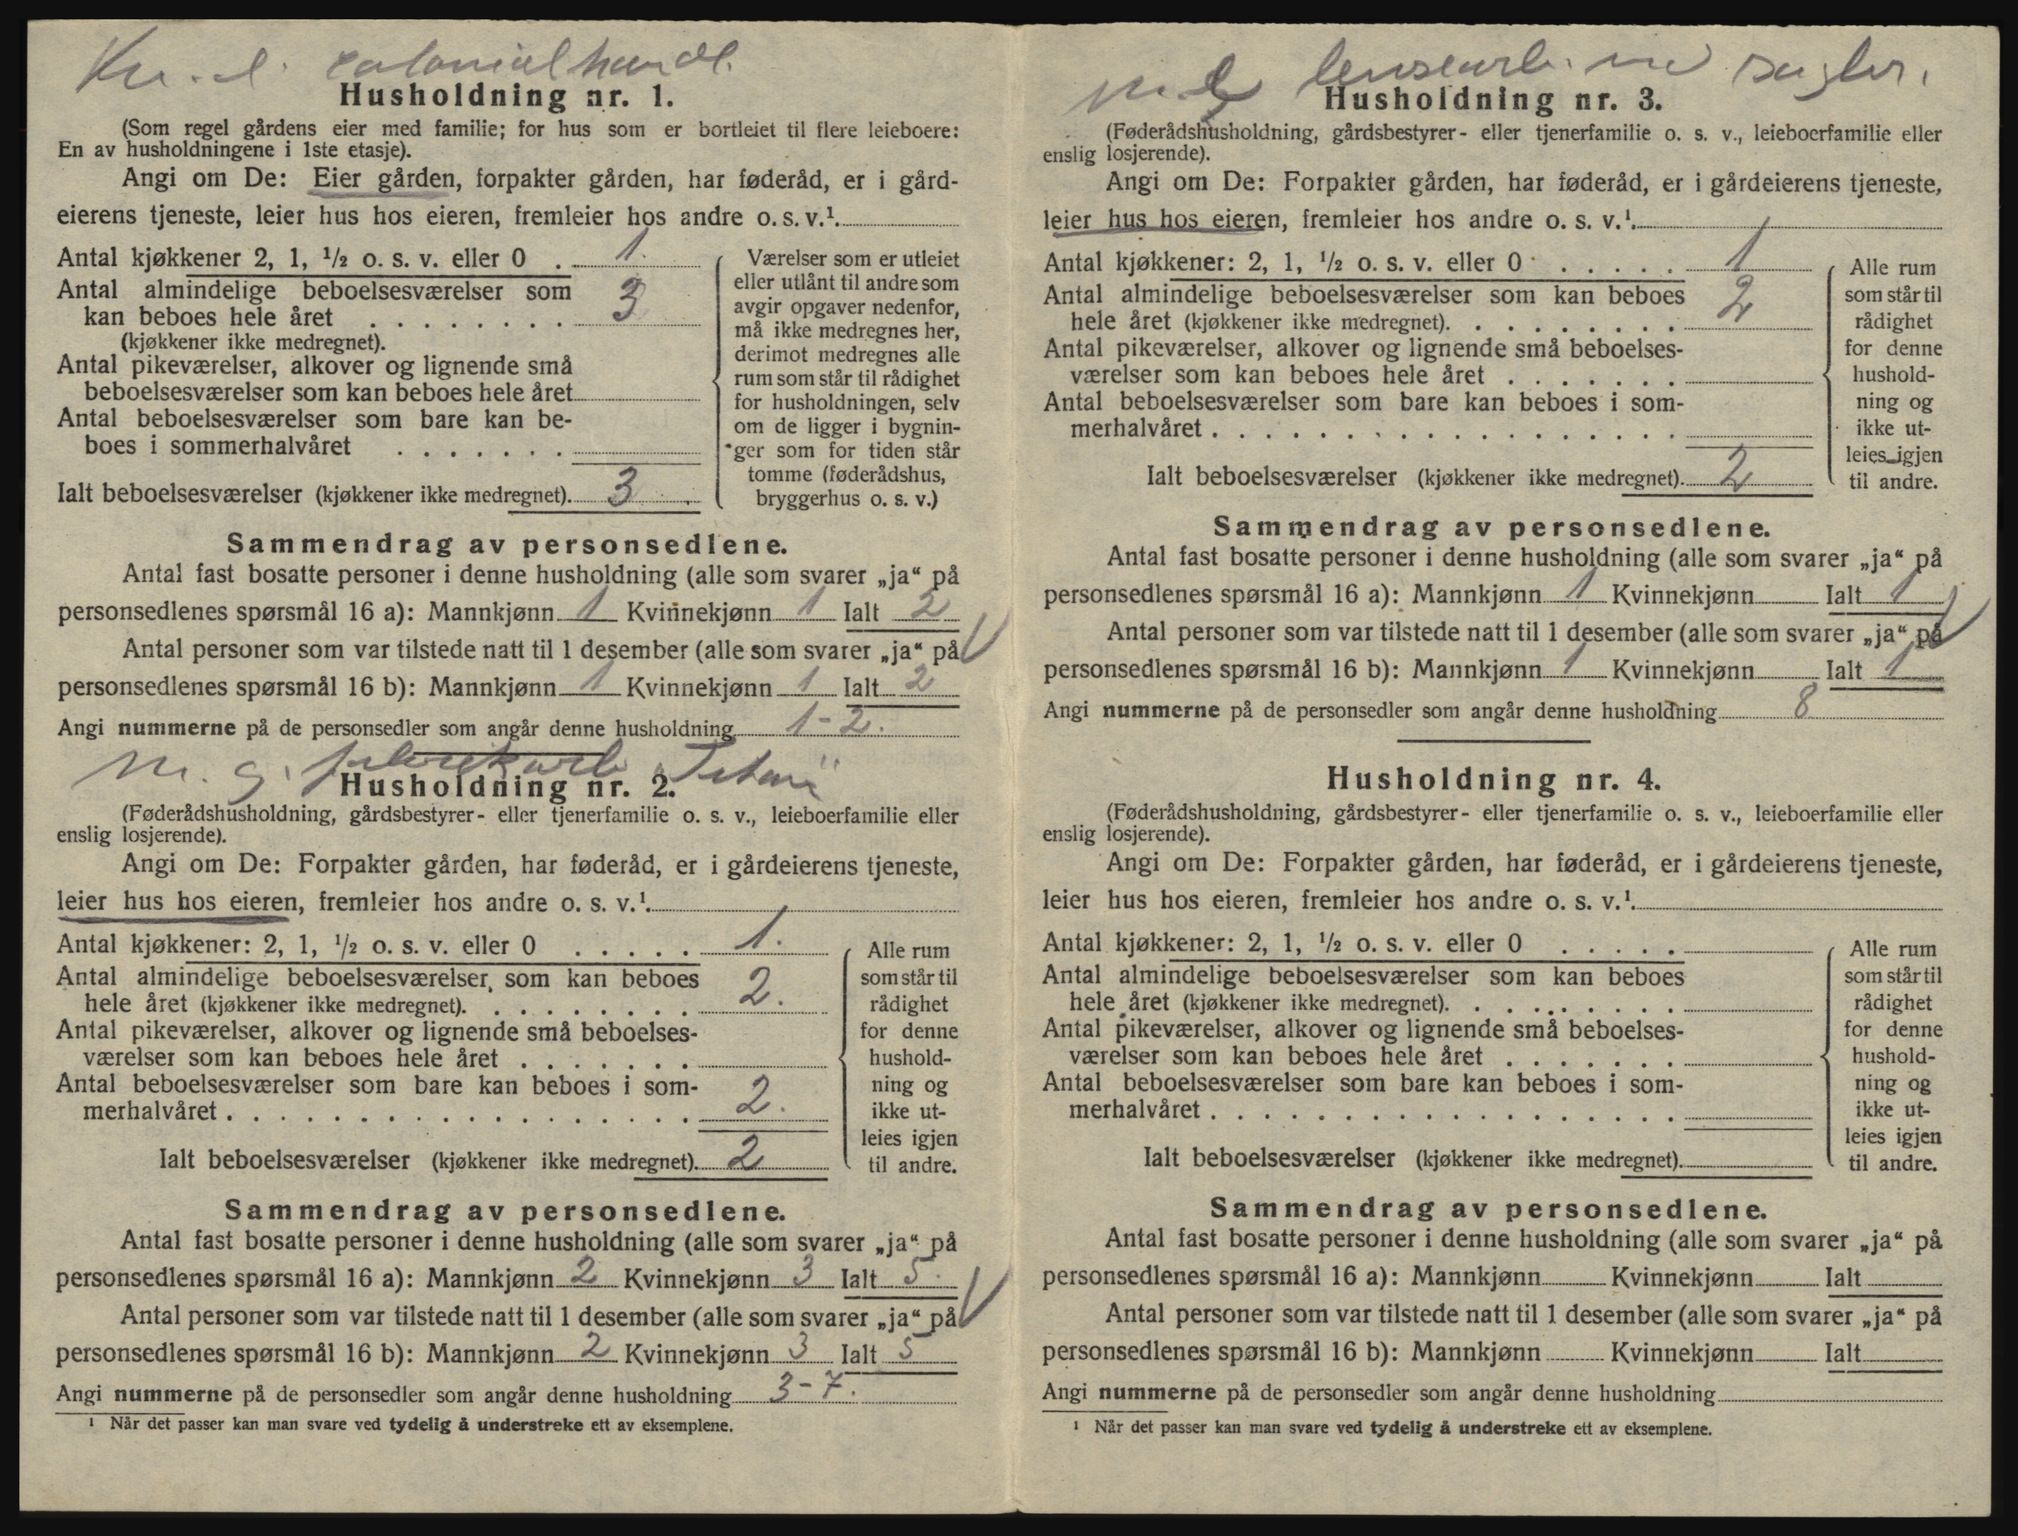 colonialhandl.
Husholdning nr. 1.
(Som regel gårdens eier med familie; for hus som er bortleiet til flere leieboere:
En av husholdningene i 1ste etasje).
Angi om De: Eier gården, forpakter gården, har føderåd, er i gård-
eierens tjeneste, leier hus hos eieren, fremleier hos andre o. s. v.¹.
Antal kjøkkener 2, 1, ½ o. s. v. eller 0 . 1.
Antal almindelige beboelsesværelser som
kan beboes hele året . . . . . . . . 3
(kjøkkener ikke medregnet).
Antal pikeværelser, alkover og lignende små
beboelsesværelser som kan beboes hele året
Antal beboelsesværelser som bare kan be-
boes i sommerhalvåret . . . . . . .
Ialt beboelsesværelser (kjøkkener ikke medregnet). 3
Værelser som er utleiet
eller utlånt til andre som
avgir opgaver nedenfor,
må ikke medregnes her,
derimot medregnes alle
rum som står til rådighet
for husholdningen, selv
om de ligger i bygnin-
ger som for tiden står
tomme (føderådshus,
bryggerhus o. s. v.)
Sammendrag av personsedlene.
Antal fast bosatte personer i denne husholdning (alle som svarer „ja“ på
personsedlenes spørsmål 16 a): Mannkjønn 1 Kvinnekjønn 1 Ialt 2
Antal personer som var tilstede natt til 1 desember (alle som svarer „ja“ på
personsedlenes spørsmål 16 b): Mannkjønn 1 Kvinnekjønn 1 Ialt 2
Angi nummerne på de personsedler som angår denne husholdning 1-2.
m. g.
Husholdning nr. 2.
(Føderådshusholdning, gårdsbestyrer- eller tjenerfamilie o. s. v., leieboerfamilie eller
enslig losjerende).
Angi om De: Forpakter gården, har føderåd, er i gårdeierens tjeneste,
leier hus hos eieren, fremleier hos andre o. s. v.¹.
Antal kjøkkener: 2, 1, ½ o. s. v. eller 0 . . . . . 1.
Antal almindelige beboelsesværelser som kan beboes
hele året (kjøkkener ikke medregnet). . . . . . . . . 2.
Antal pikeværelser, alkover og lignende små beboelses-
værelser som kan beboes hele året . . . . . . .
Antal beboelsesværelser som bare kan beboes i som-
merhalvåret . . . . . . . . . . . . . . . . . . 2.
Ialt beboelsesværelser (kjøkkener ikke medregnet). 2
Alle rum
som står til
rådighet
for denne
hushold-
ning og
ikke ut-
leies igjen
til andre.
Sammendrag av personsedlene.
Antal fast bosatte personer i denne husholdning (alle som svarer „ja“ på
personsedlenes spørsmål 16 a): Mannkjønn 2 Kvinnekjønn 3 Ialt 5.
Antal personer som var tilstede natt til 1 desember (alle som svarer „ja“ på
personsedlenes spørsmål 16 b): Mannkjønn 2 Kvinnekjønn 3 Ialt 5
Angi nummerne på de personsedler som angår denne husholdning 3-7.
¹ Når det passer kan man svare ved tydelig å understreke ett av eksemplene.
Husholdning nr. 3.
(Føderådshusholdning, gårdsbestyrer- eller tjenerfamilie o. s. v., leieboerfamilie eller
enslig losjerende).
Angi om De: Forpakter gården, har føderåd, er i gårdeierens tjeneste,
leier hus hos eieren, fremleier hos andre o. s. v.¹.
Antal kjøkkener: 2, 1, ½ o. s. v. eller 0 . . . . . 1
Antal almindelige beboelsesværelser som kan beboes
hele året (kjøkkener ikke medregnet). . . . . . . . . 2
Antal pikeværelser, alkover og lignende små beboelses-
værelser som kan beboes hele året . . . . . . .
Antal beboelsesværelser som bare kan beboes i som-
merhalvåret . . . . . . . . . . . . . . . . . .
Ialt beboelsesværelser (kjøkkener ikke medregnet). 2
Alle rum
som står til
rådighet
for denne
hushold-
ning og
ikke ut-
leies igjen
til andre.
Sammendrag av personsedlene.
Antal fast bosatte personer i denne husholdning (alle som svarer „ja“ på
personsedlenes spørsmål 16 a): Mannkjønn 1 Kvinnekjønn Ialt 1
Antal personer som var tilstede natt til 1 desember (alle som svarer „ja“ på
personsedlenes spørsmål 16 b): Mannkjønn 1 Kvinnekjønn Ialt 1
Angi nummerne på de personsedler som angår denne husholdning 8
Husholdning nr. 4.
(Føderådshusholdning, gårdsbestyrer- eller tjenerfamilie o. s. v., leieboerfamilie eller
enslig losjerende).
Angi om De: Forpakter gården, har føderåd, er i gårdeierens tjeneste,
leier hus hos eieren, fremleier hos andre o. s. v.¹.
Antal kjøkkener: 2, 1, ½ o. s. v. eller 0 . . . . .
Antal almindelige beboelsesværelser som kan beboes
hele året (kjøkkener ikke medregnet). . . . . . . . .
Antal pikeværelser, alkover og lignende små beboelses-
værelser som kan beboes hele året . . . . . . .
Antal beboelsesværelser som bare kan beboes i som-
merhalvåret . . . . . . . . . . . . . . . . . .
Ialt beboelsesværelser (kjøkkener ikke medregnet).
Alle rum
som står til
rådighet
for denne
hushold-
ning og
ikke ut-
leies igjen
til andre.
Sammendrag av personsedlene.
Antal fast bosatte personer i denne husholdning (alle som svarer „ja“ på
personsedlenes spørsmål 16 a): Mannkjønn Kvinnekjønn Ialt
Antal personer som var tilstede natt til 1 desember (alle som svarer „ja“ på
personsedlenes spørsmål 16 b): Mannkjønn Kvinnekjønn Ialt
Angi nummerne på de personsedler som angår denne husholdning
¹ Når det passer kan man svare ved tydelig å understreke ett av eksemplene.